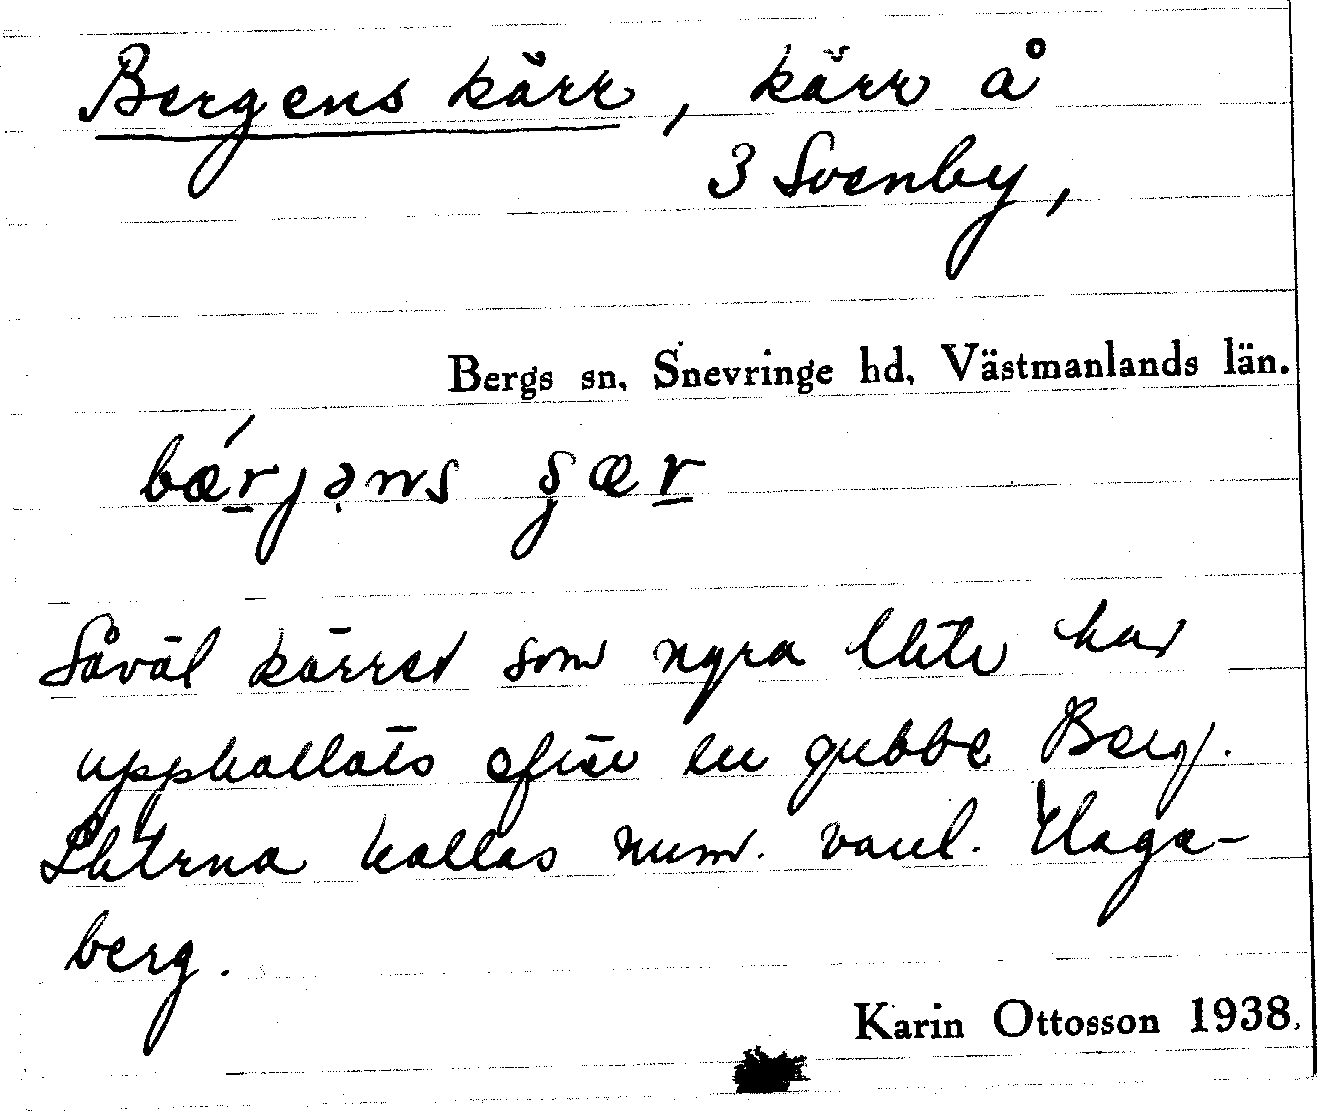 Bergens kärr, kärr å
3 Svenby,
Bergs sn, Snevringe hd, Västmanlands län.
bærjəns ʂær
Såväl kärret som ngra lhtr har
uppkallats efter en gubbe Berg.
Lhtrna kallas num. vanl. Haga-
berg.
Karin Ottosson 1938.